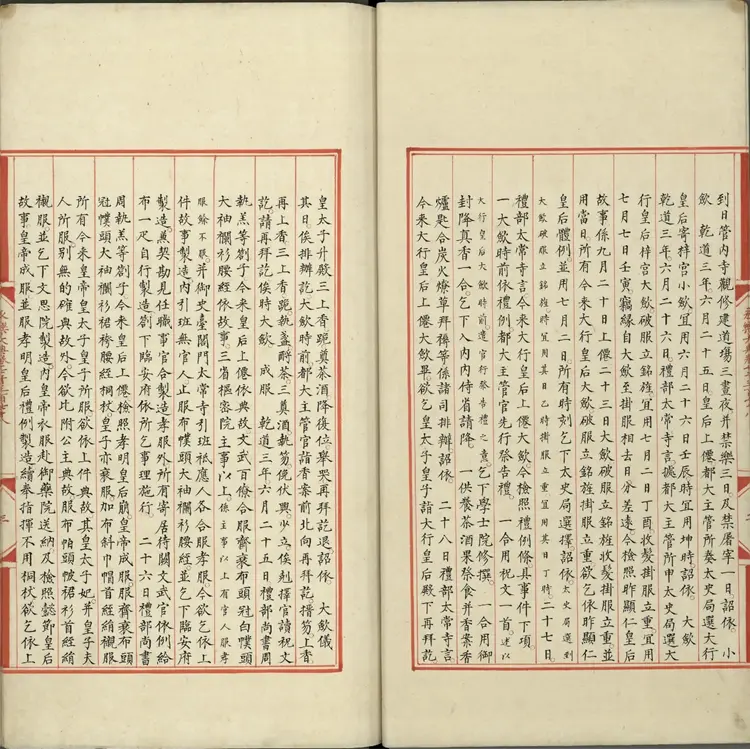 到日管內寺觀修建道場三晝夜并禁樂三日及禁屠宰一日詔依。 小
斂 乾道三年六月二十五日皇后上僊都大主管所奏太史局選大行
皇后寄梓宮小斂宜用六月二十六日壬辰時宜用坤時詔依。 大斂
乾道三年六月二十六日禮部太常寺言據都大主管所申太史局選大
行皇后梓宮大斂破服立銘旌宜用七月二日丁酉收髮掛服立重宜用
七月七日壬寅竊緣自大斂至掛服相去日分差遠今檢照昨顯仁皇后
故事係九月二十日上僊二十三日大斂破服立銘旌收髮掛服立重並
用當日所有今來大行皇后大斂破服立銘旌掛服立重欲乞依昨顯仁
皇后體例並用七月二日所有時刻乞下太史局選擇詔依太史局選到
大斂破服立銘旌時宜用其日乙時掛服立重宜用其日丁時二十七日
禮部太常寺言今來大行皇后上僊大斂令檢照禮例條具事件下項
一大斂時前依禮例都大主管官先行祭告禮。 一合用祝文一首述以
大行皇后大斂時前遣官行祭告禮之意乞下學士院修撰。 一合用御
封降真香一合乞下入內內侍省請降。 一供養茶酒果祭食并香案香
爐匙合炭火燎草拜褥等係諸司排辦詔依。 二十八日禮部太常寺言
今來大行皇后上僊大斂畢欲乞皇太子皇子詣大行皇后殿下再拜訖
皇太子升殿三上香跪執盞奠茶酒降復位舉哭再拜訖退詔依 大斂儀
其日俟排辦訖大斂時前都大主管官詣香案前北向再拜訖搢笏上香
再上香三上香跪執盞酹茶三奠酒執笏俛伏興少立俟剋擇官讀祝文
訖請再拜訖俟時大斂 成服 乾道三年六月二十五日禮部尚書周
執羔等劄子今來皇后上僊依典故文武百僚合服齊衰布頭冠白幞頭
大袖襴衫腰絰依故事三省樞密院主事以上係主事以上有官人服孝
服餘不服并御史臺閤門太常寺引班祗應人各合服孝服今欲乞依上
件故事製造內引班無官人止服布幞頭大袖襴衫腰絰並乞下臨安府
製造兼契勘見任職事官合製造孝服外所有寄居待闕文武官依例給
布一疋自行製造劄下臨安府依所乞事理施行 二十六日禮部尚書
周執羔等劄子今來皇后上僊檢照孝明皇后崩皇帝成服服齊衰布頭
冠幞頭大袖襴衫裙袴腰絰桐杖皇子亦衰服加布斜巾帽首絰絹襯服
所有今來皇帝皇太子皇子所服欲依上件典故其皇太子妃并皇子夫
人所服別無的確典故外今欲比附公主典故服布帕頭帔裙衫首絰絹
襯服並乞下文思院製造內皇帝衣服赴御藥院送納及檢照懿節皇后
故事皇帝成服並服孝明皇后禮例製造續奉指揮不用桐杖欲乞依上